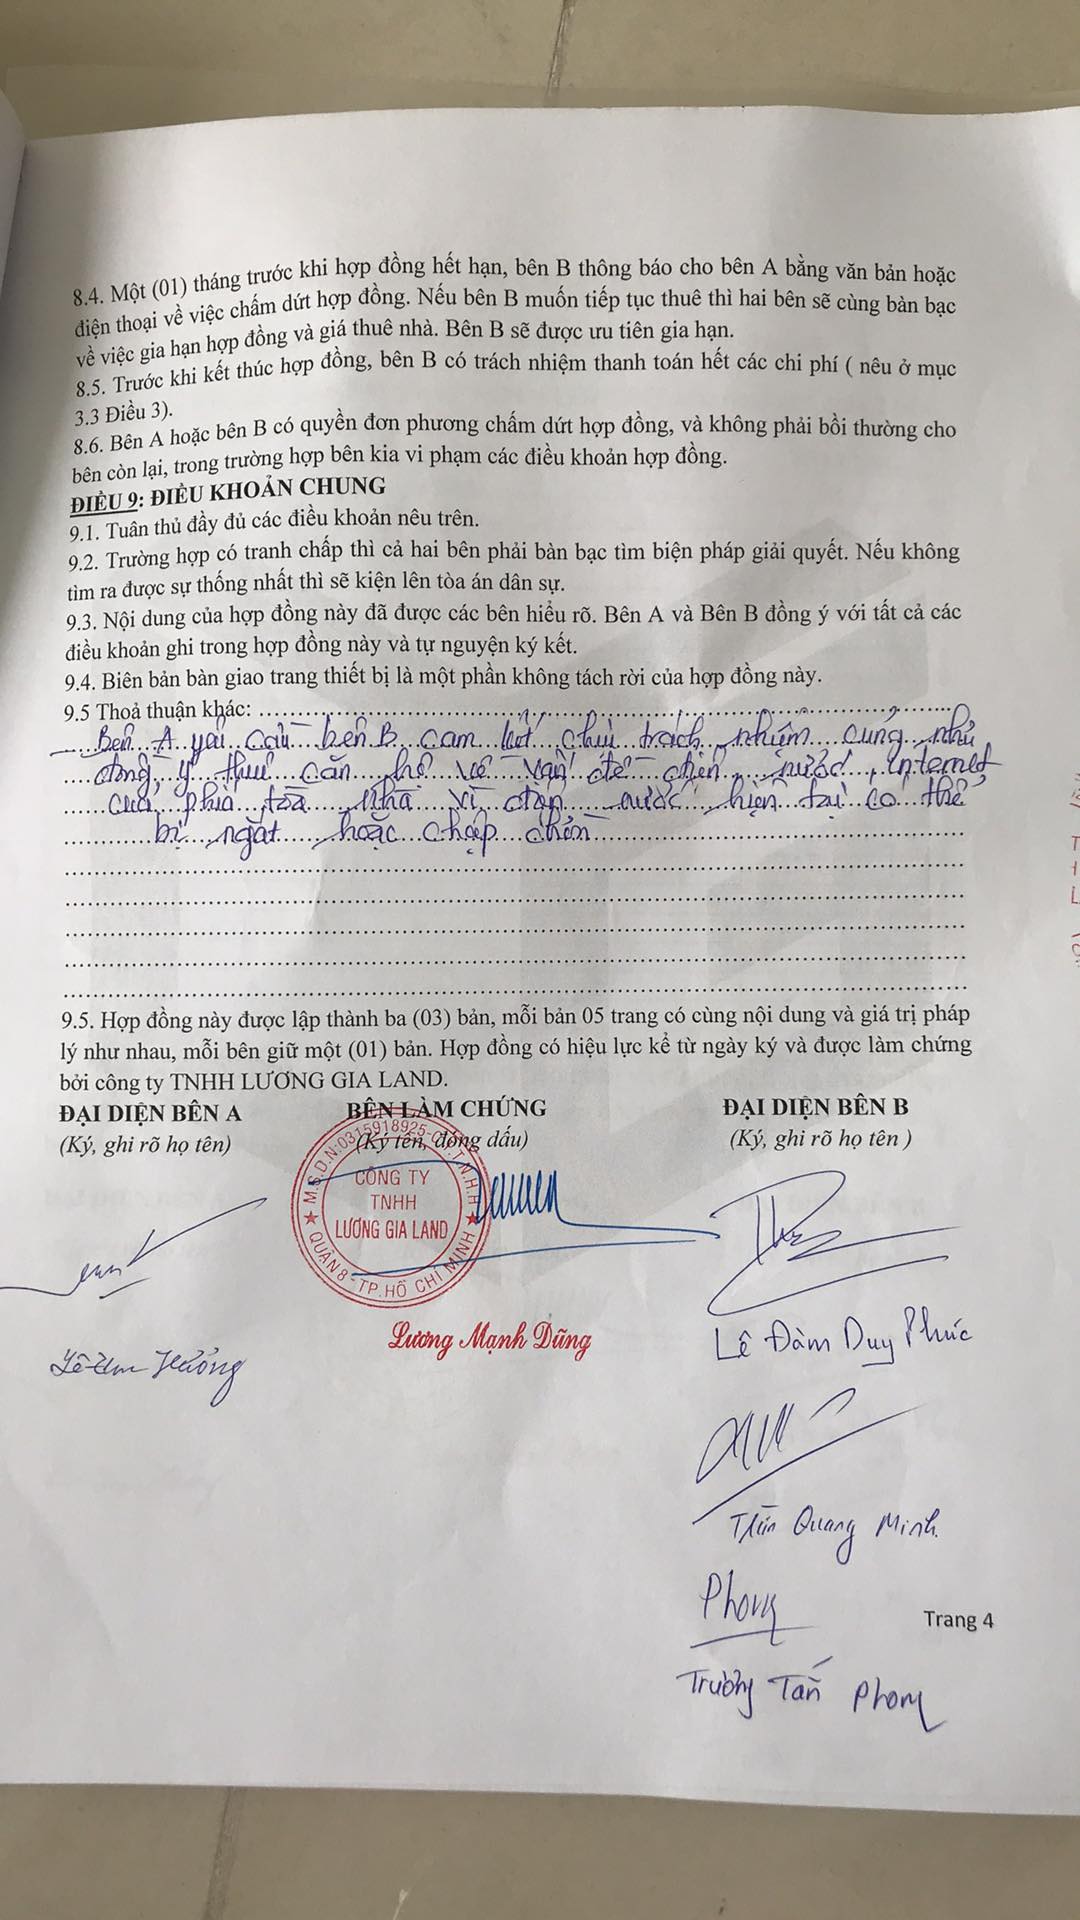 8.4. Một (01) tháng trước khi hợp đồng hết hạn, bên B thông báo cho bên A bằng văn bản hoặc
điện thoại về việc chấm dứt hợp đồng. Nếu bên B muốn tiếp tục thuê thì hai bên sẽ cùng bàn bạc
về việc gia hạn hợp đồng và giá thuê nhà. Bên B sẽ được ưu tiên gia hạn.
8.5. Trước khi kết thúc hợp đồng, bên B có trách nhiệm thanh toán hết các chi phí ( nêu ở mục
3.3 Điều 3).
8.6. Bên A hoặc bên B có quyền đơn phương chấm dứt hợp đồng, và không phải bồi thường cho
bên còn lại, trong trường hợp bên kia vi phạm các điều khoản hợp đồng.
ĐIỀU 9: ĐIỀU KHOẢN CHUNG
9.1. Tuân thủ đầy đủ các điều khoản nêu trên.
9.2. Trường hợp có tranh chấp thì cả hai bên phải bàn bạc tìm biện pháp giải quyết. Nếu không
tìm ra được sự thống nhất thì sẽ kiện lên tòa án dân sự.
9.3. Nội dung của hợp đồng này đã được các bên hiểu rõ. Bên A và Bên B đồng ý với tất cả các
điều khoản ghi trong hợp đồng này và tự nguyện ký kết.
9.4. Biên bản bàn giao trang thiết bị là một phần không tách rời của hợp đồng này.
9.5 Thoả thuận khác:
Bên A yêu cầu bên B cam kết chịu trách nhiệm cũng như
đồng ý thuê căn hộ về vấn đề điện, nước, internet
của phía tòa nhà vì điện nước hiện tại có thể
bị ngắt hoặc chập chờn
9.5. Hợp đồng này được lập thành ba (03) bản, mỗi bản 05 trang có cùng nội dung và giá trị pháp
lý như nhau, mỗi bên giữ một (01) bản. Hợp đồng có hiệu lực kể từ ngày ký và được làm chứng
bởi công ty TNHH LƯƠNG GIA LAND.
ĐẠI DIỆN BÊN A BÊN LÀM CHỨNG ĐẠI DIỆN BÊN B
(Ký, ghi rõ họ tên) (Ký tên, đóng dấu) (Ký, ghi rõ họ tên )
M.S.D.N:0315918925-C.T.T.N.H.H
CÔNG TY
TNHH
LƯƠNG GIA LAND
QUẬN 8-TP.HỒ CHÍ MINH
Lương Mạnh Dũng
Lê Đàm Duy Phúc
Quang Minh
Phong
Trang 4
Trương Tấn Phong